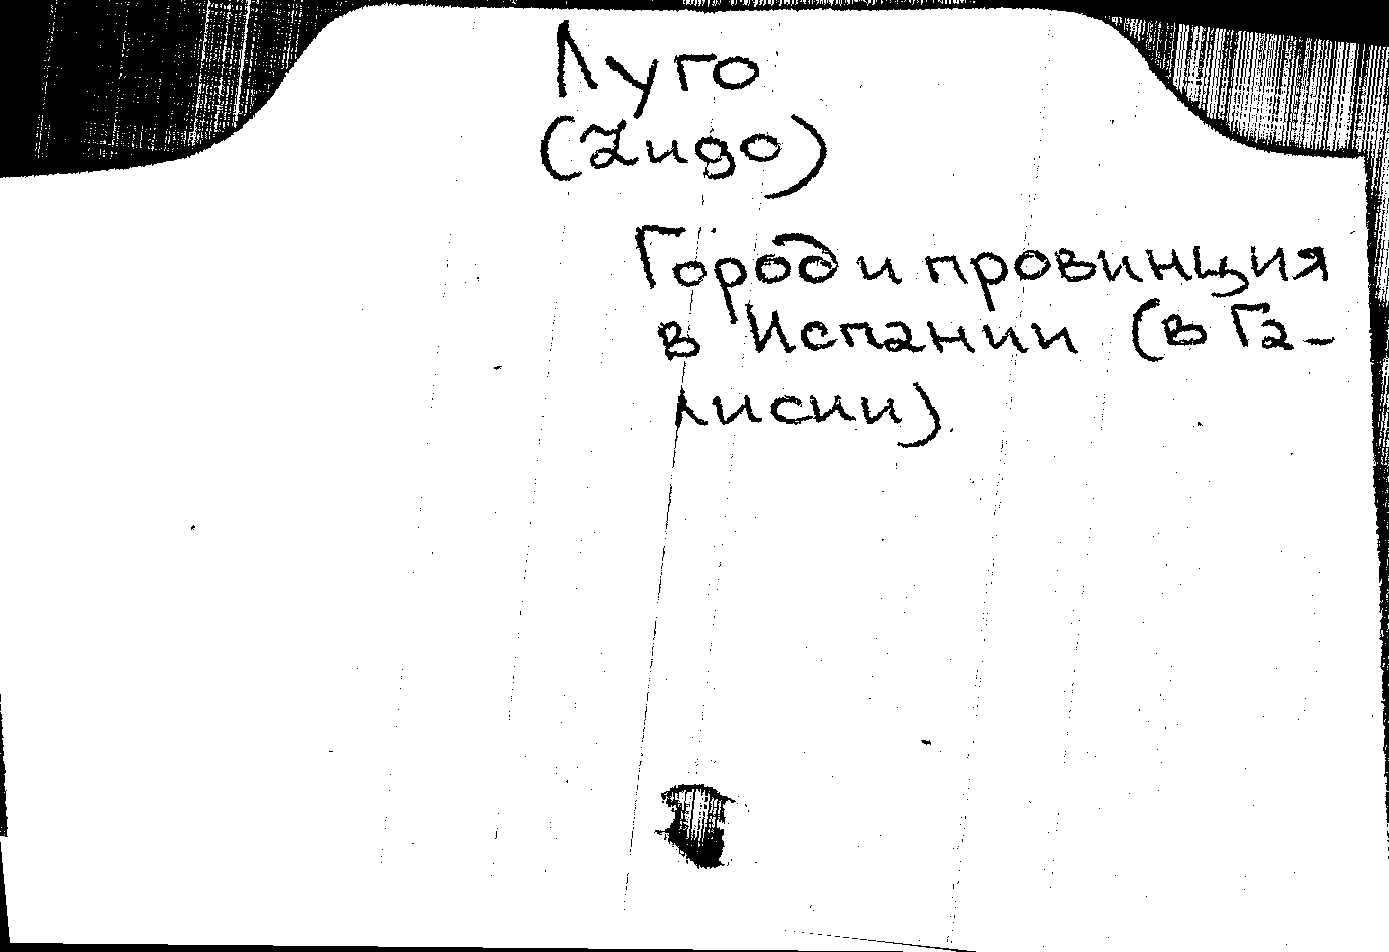 Луго
(Lugo)
Город и провинция
в Испании (в Га-
лисии)